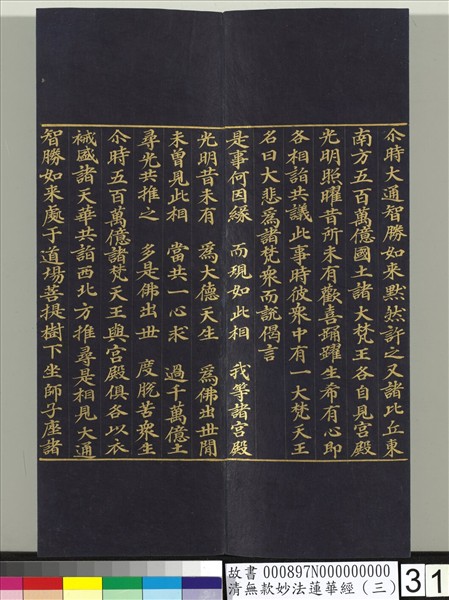 尒時大通智勝如来黙然許之又諸比丘東
南方五百萬億國土諸大梵王各自見宮殿
光明照曜昔所未有歡喜踊躍生希有心即
各相詣共議此事時彼衆中有一大梵天王
名曰大悲爲諸梵衆而說偈言
是事何因緣　而現如此相　我等諸宮殿
光明昔未有　爲大德天生　爲佛出世間
未曽見此相　當共一心求　過千萬億土
尋光共推之　多是佛出世　度脫苦衆生
尒時五百萬億諸梵天王與宮殿俱各以衣
裓盛諸天華共詣西北方推尋是相見大通
智勝如来處于道場菩提樹下坐師子座諸
故書 000897N000000000
清無款妙法蓮華經（三）
31